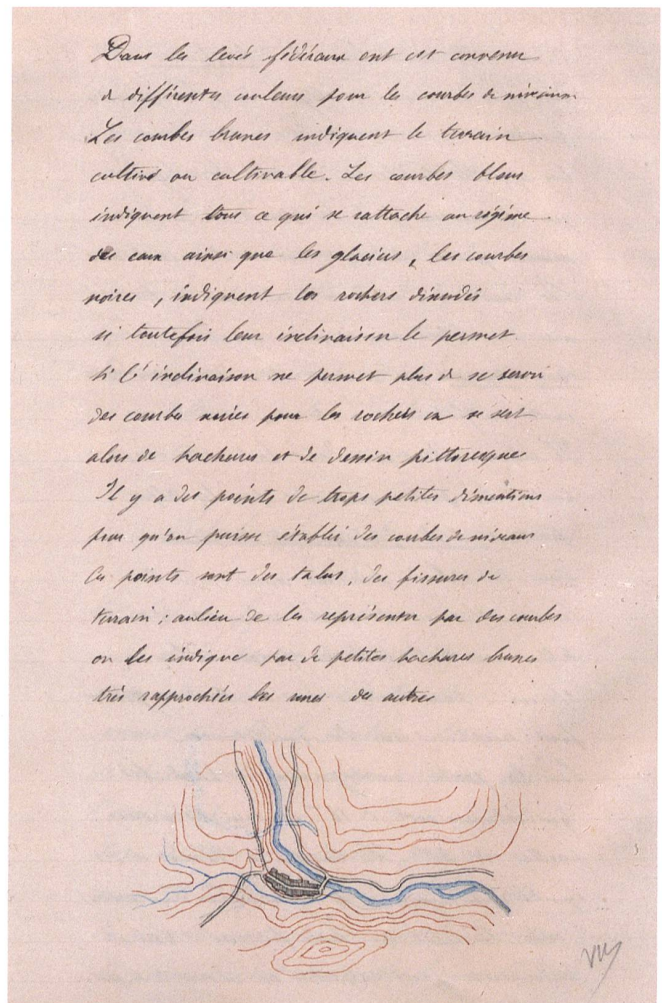 Dans les levés fédéraux ont est convenu
de différentes couleurs pour les courbes de niveaux
Les courbes brunes indiquent le terrain
cultivé ou cultivable. Les courbes bleus
indiquent tous ce qui se rattache au régime
des eaux ainsi que les glaciers, les courbes
noires, indiquent les rochers dénudés
si toutefois leur inclinaison le permet
si l'inclinaison ne permet plus de se servir
des courbes unies pour les rochers on se sert
alors de hachures et de dessin pittoresque
Il y a des points de trops petites dimentions
pour qu'on puisse établi des courbes de niveaux
Ces points sont des talus, des fissures de
terrain; aulieu de les représenter par des courbes
on les indique par de petites hachures brunes
très rapprochées les unes des autres